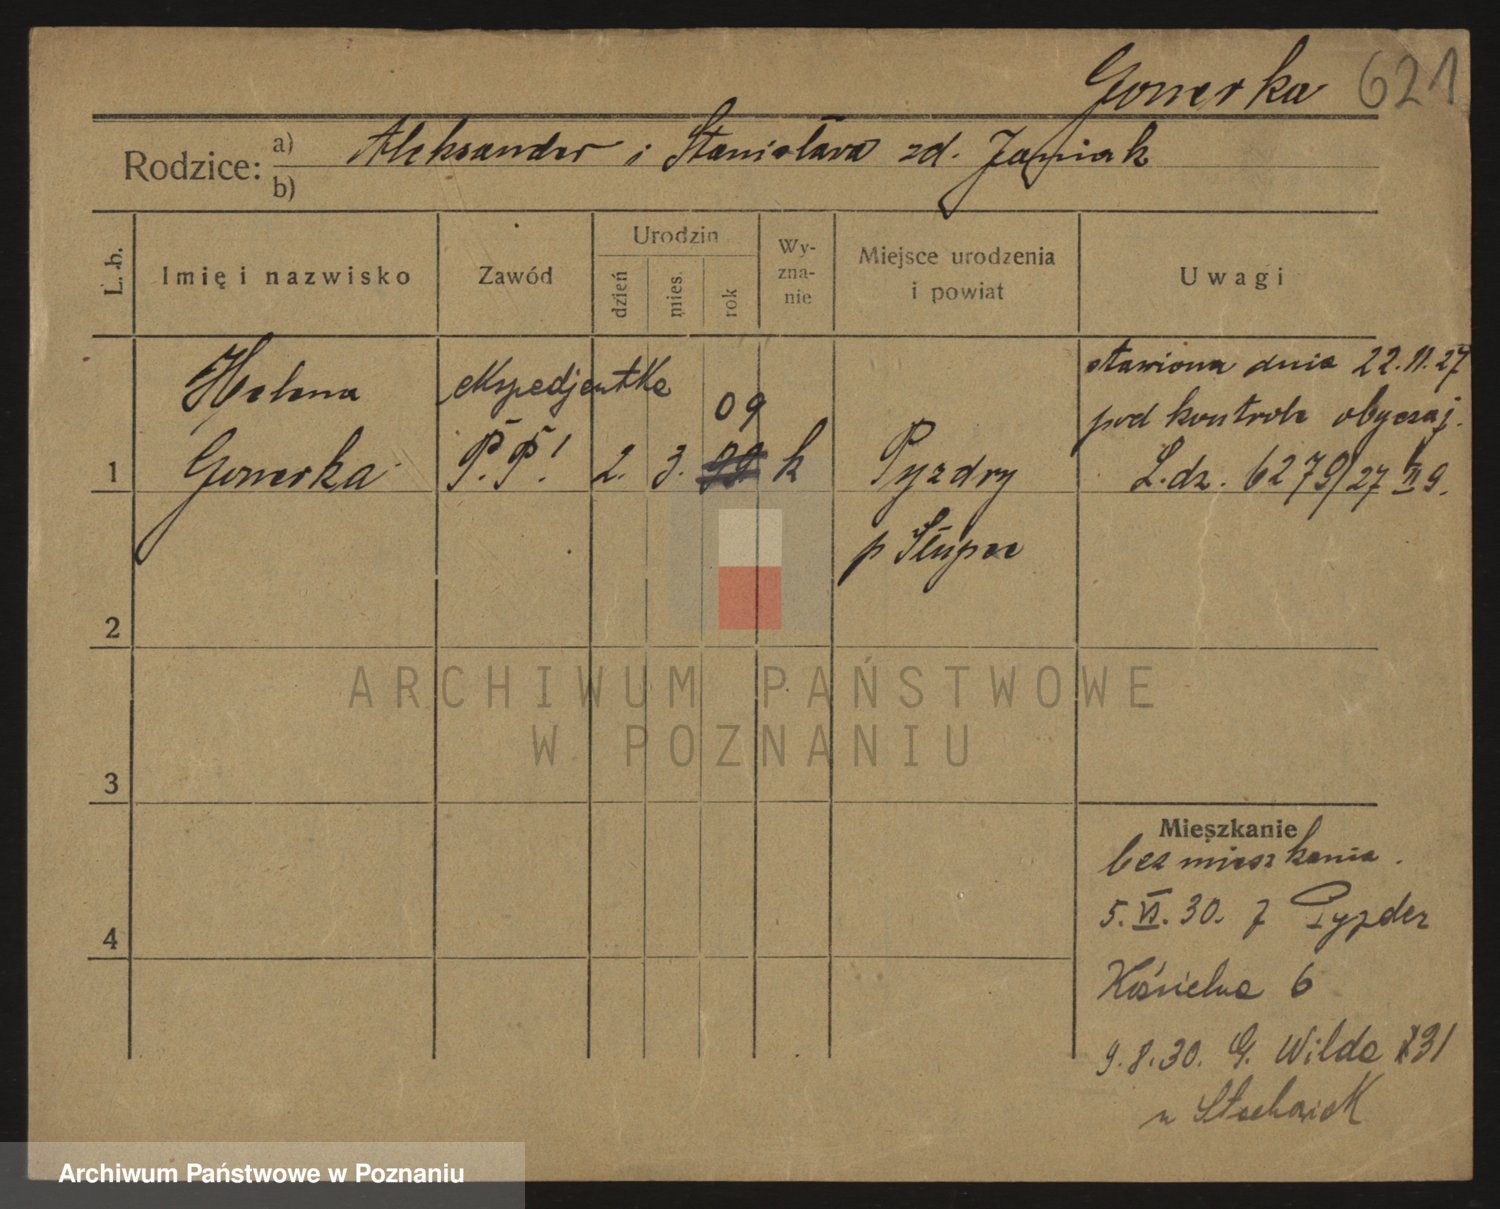 Gonerka 621
Rodzice: a) Aleksander i Stanisława zd. Janiak
b)
L. b. Imię i nazwisko Zawód Urodzin dzień mies. rok Wy-zna-nie Miejsce urodzenia i powiat Uwagi
Helena ekspedjentka 09 stawiona dnia 22.11.27
pod kontrole obyczaj.
1 Gonerka P.P! 2. 3. 99 k Pyzdry L.dz. 6279/27 II 9.
p Słupca
2
ARCHIWUM PAŃSTWOWE
W POZNANIU
3
Mieszkanie
bez mieszkania.
5.VI.30. z Pyzder
4
Kościelna 6
9.8.30. G. Wilda 31
u Stachowiak
Archiwum Państwowe w Poznaniu